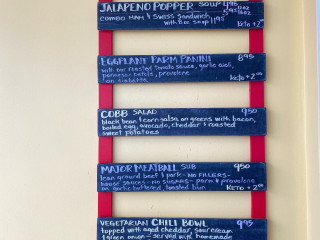 JALAPENO POPPER SOUP 4.95 8oz
COMBO HAM & Swiss Sandwich
with the soup 11.95 Keto +2.00
EGGPLANT PARM PANINI 8.95
with our roasted tomato sauce, garlic aioli,
parmesan petals, provolone
on ciabatta Keto +2.00
COBB SALAD 9.50
black bean & corn salsa, on greens with bacon,
boiled egg, avocado, cheddar & roasted
sweet potatoes
MAJOR MEATBALL SUB 9.50
lean ground beef & pork - NO FILLERS -
house sauces - NO SUGARS - parm & provolone
on garlic buttered, toasted bun KETO +2.00
VEGETARIAN CHILI BOWL 9.95
topped with aged cheddar, sour cream
& green onion - served with homemade